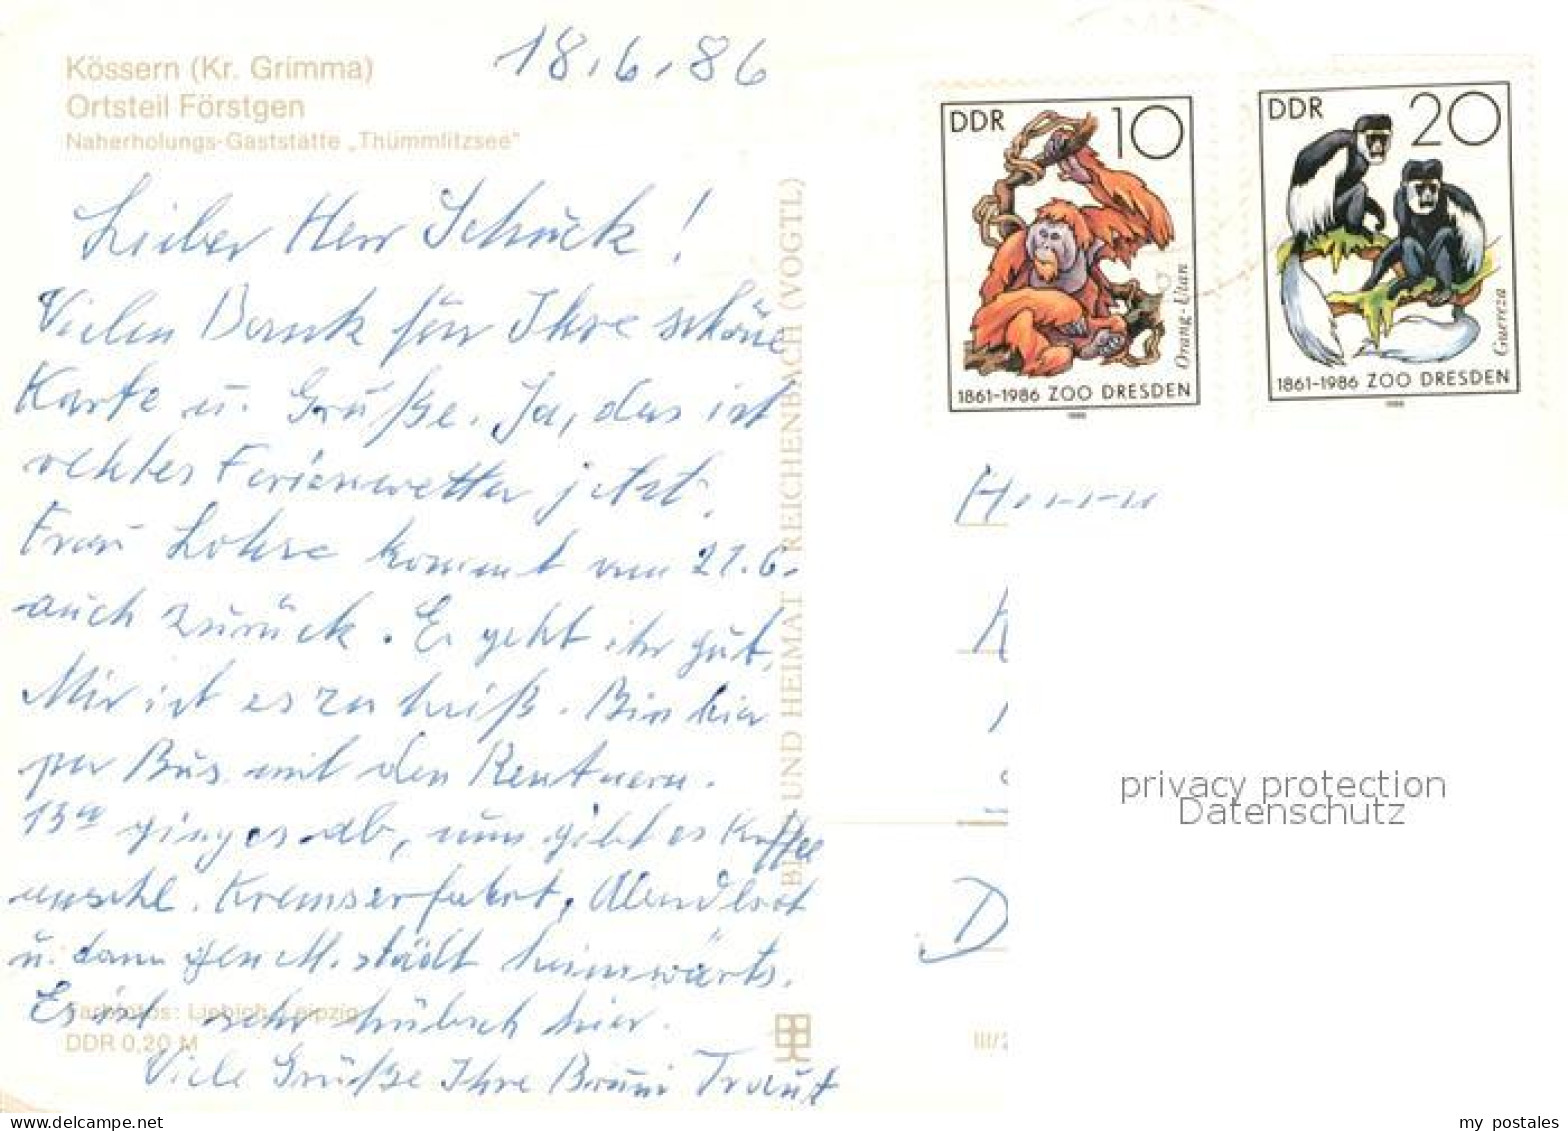 Kössern (Kr. Grimma)
Ortsteil Förstgen
Naherholungs-Gaststätte „Thümmlitzsee"
18.6.86
Lieber Herr Schück!
Vielen Dank für Ihre schöne
Karte u. Grüße. Ja, das ist
rechtes Ferienwetter jetzt.
Frau Lohse kommt nun 21.6.
auch zurück. Es geht ihr gut.
Mir ist es zu heiß. Bin hier
per Bus mit den Rentnern.
13ºº ging es ab, nun gibt es Kaffee
anschl. Kremserfahrt, Abendbrot
u. dann gen M.städt heimwärts.
Es ist sehr hübsch hier.
Viele Grüße Ihre Traut
Farbfotos: Liebich, Leipzig
DDR 0,20 M
UND HEIMAT REICHENBACH (VOGTL)
DDR 10
Orang-Utan
1861-1986 ZOO DRESDEN
1986
DDR 20
Guereza
1861-1986 ZOO DRESDEN
1986
Herrn
D
III/
privacy protection
Datenschutz
my_postales